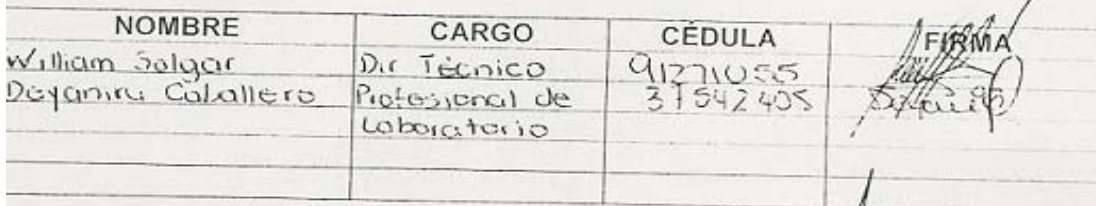 NOMBRE CARGO CÉDULA FIRMA
William Salgar Dir Técnico 91271055
Deyanira Caballero Profesional de 37542405
Laboratorio